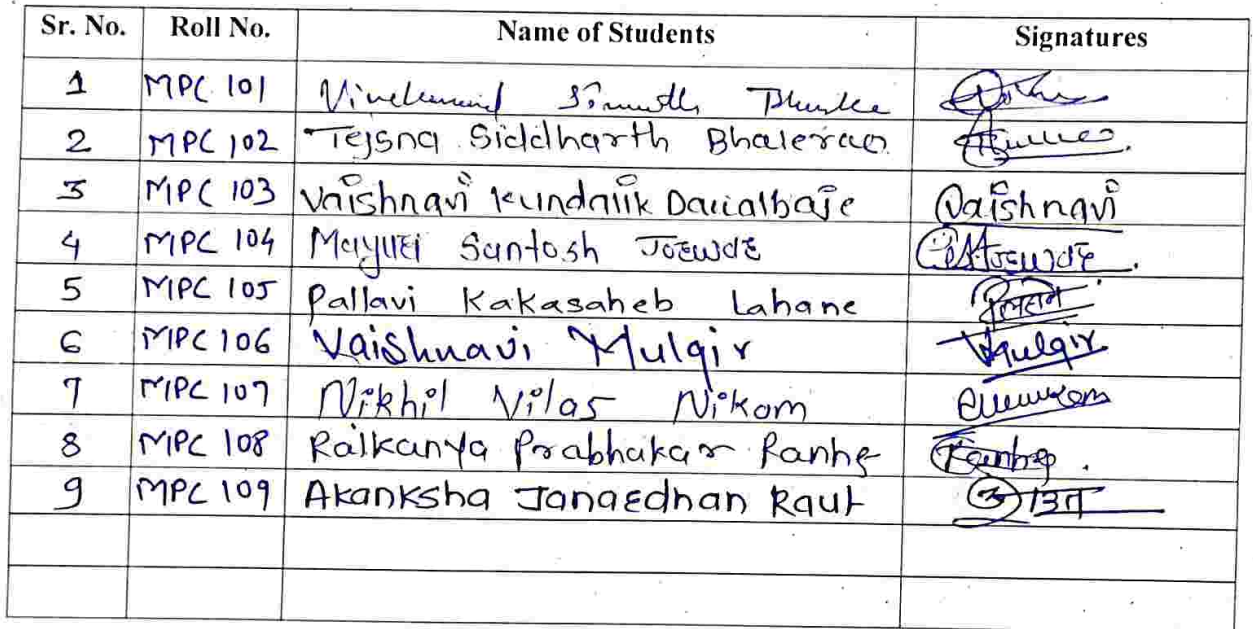 Sr. No. Roll No. Name of Students Signatures
1 MPC 101
2 MPC 102 Tejsna Siddharth Bhalerao
3 MPC 103 Vaishnavi Kundalik Vaishnavi
4 MPC 104 Mayuri Santosh Jorwde
5 MPC 105 Pallavi Kakasaheb Lahane
6 MPC 106 Vaishnavi Mulgir Mulgir
7 MPC 107 Nikhil Vilas Nikam
8 MPC 108 Rajkanya Prabhakar Ranhe
9 MPC 109 Akanksha Janardhan Raut